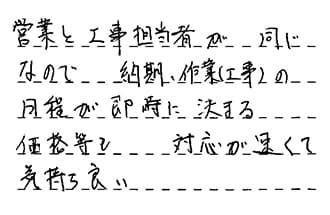 営業と工事担当者が同じ
なので 納期、作業(工事)の
日程が即時に決まる
価格等も 対応が速くて
気持ち良い